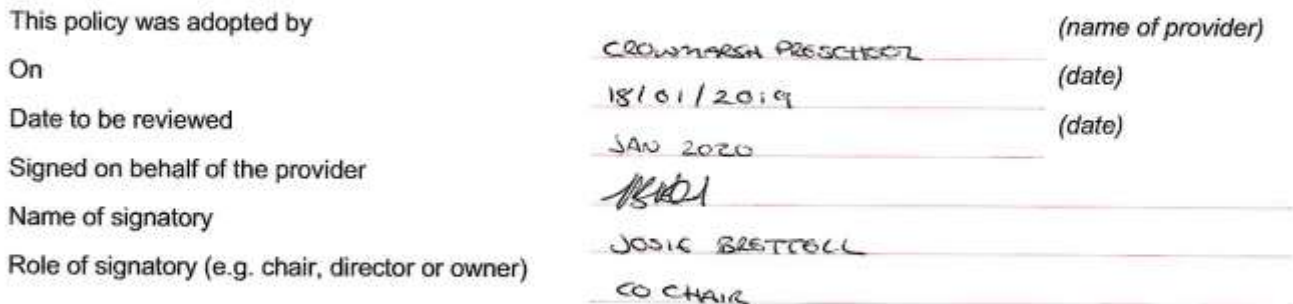 This policy was adopted by CROWMARSH PRESCHOOL (name of provider)
On 18/01/2019 (date)
Date to be reviewed JAN 2020 (date)
Signed on behalf of the provider
Name of signatory JOSIE BRETTELL
Role of signatory (e.g. chair, director or owner) CO CHAIR